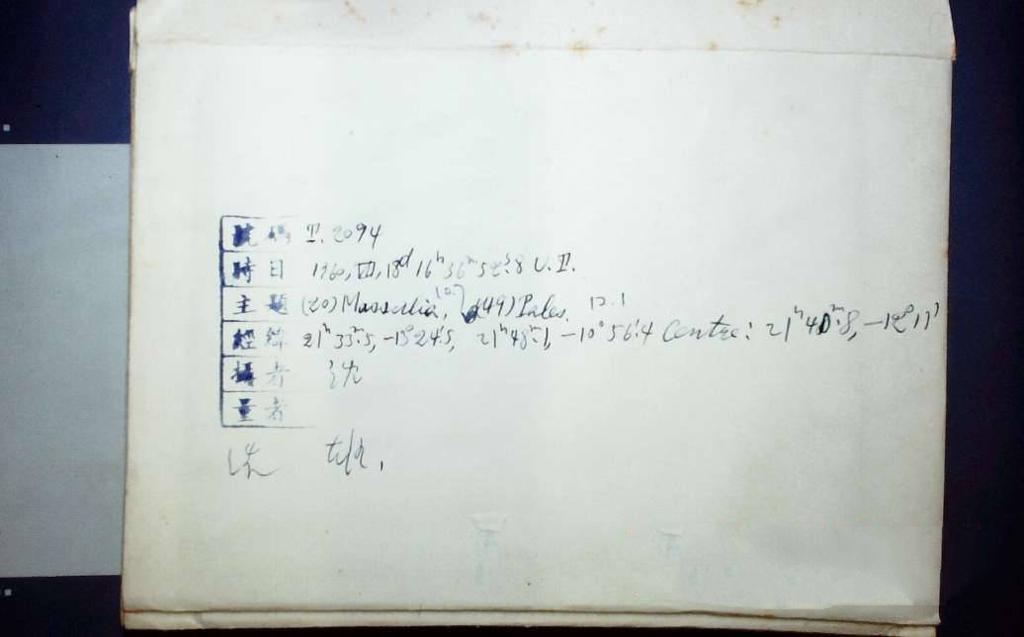 號碼 T. 2094
時日 1960, VII, 18ᵈ 16ʰ 36ᵐ 52ˢ.8 U.T.
主題 (20) Massalia, 10.7 (49) Pales. 12.1
經緯 21ʰ 33ᵐ.5, -13°24'.5, 21ʰ 48ᵐ.1, -10°56'.4 Centre: 21ʰ 40ᵐ.8, -12°11'
攝者 沈
量者